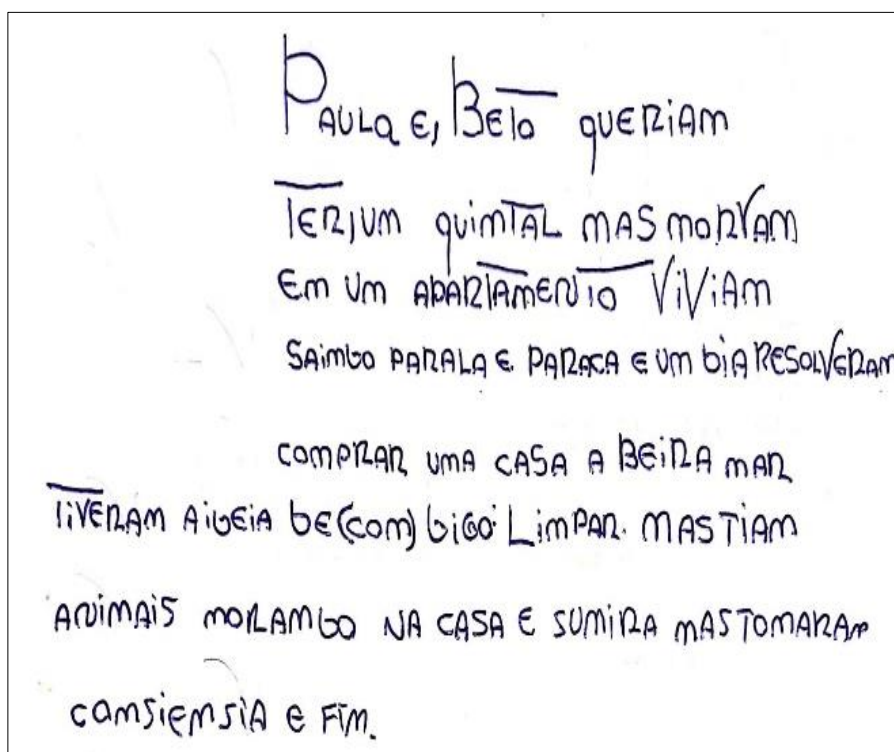 PAULA E, BETO QUERIAM
TER, UM QUIMTAL MAS MORVAM
EM UM APARTAMENTO VIVIAM
SAIMbO PARALA E PARACA E UM bIA RESOLVERAM
COMPRAR UMA CASA A BEIRA MAR
TIVERAM AIbEIA bE (COM) bIGO LIMPAR. MAS TIAM
ANIMAIS MORAMbO NA CASA E SUMIRA MAS TOMARAM
CAMSIEMSIA E FIM.